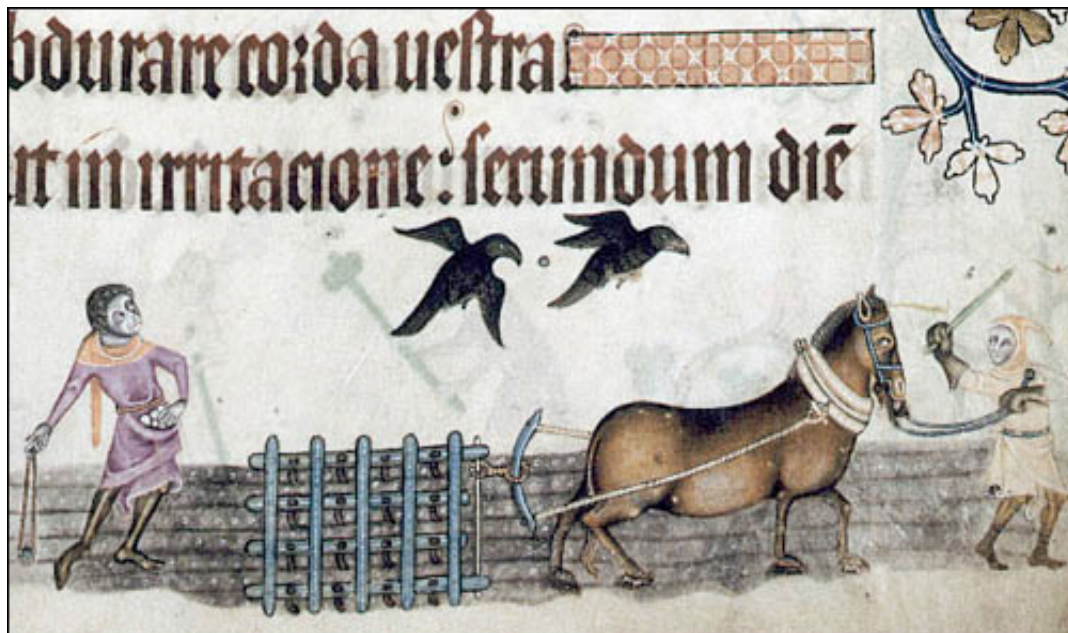 bdurare corda uestra.
ut in irritacione: secundum diē